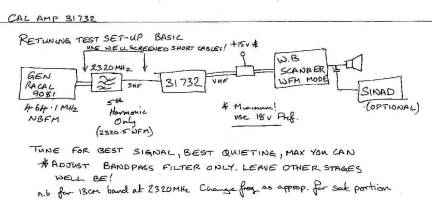 CAL AMP 31732
RETUNING TEST SET-UP BASIC
USE WELL SCREENED SHORT CABLES!
+15V *
2320MHz
GEN
RACAL
9081
464.1 MHz
NBFM
SHF
5TH
Harmonic
Only
(2320.5 NFM)
31732
VHF
* Minimum!
use 18v Pref.
W.B
SCANNER
WFM MODE
SINAD
(OPTIONAL)
TUNE FOR BEST SIGNAL, BEST QUIETING, MAX YOU CAN
* ADJUST BANDPASS FILTER ONLY. LEAVE OTHER STAGES
WELL BE!
n.b for 13cm band at 2320MHz Change freq as approp. for sat portion